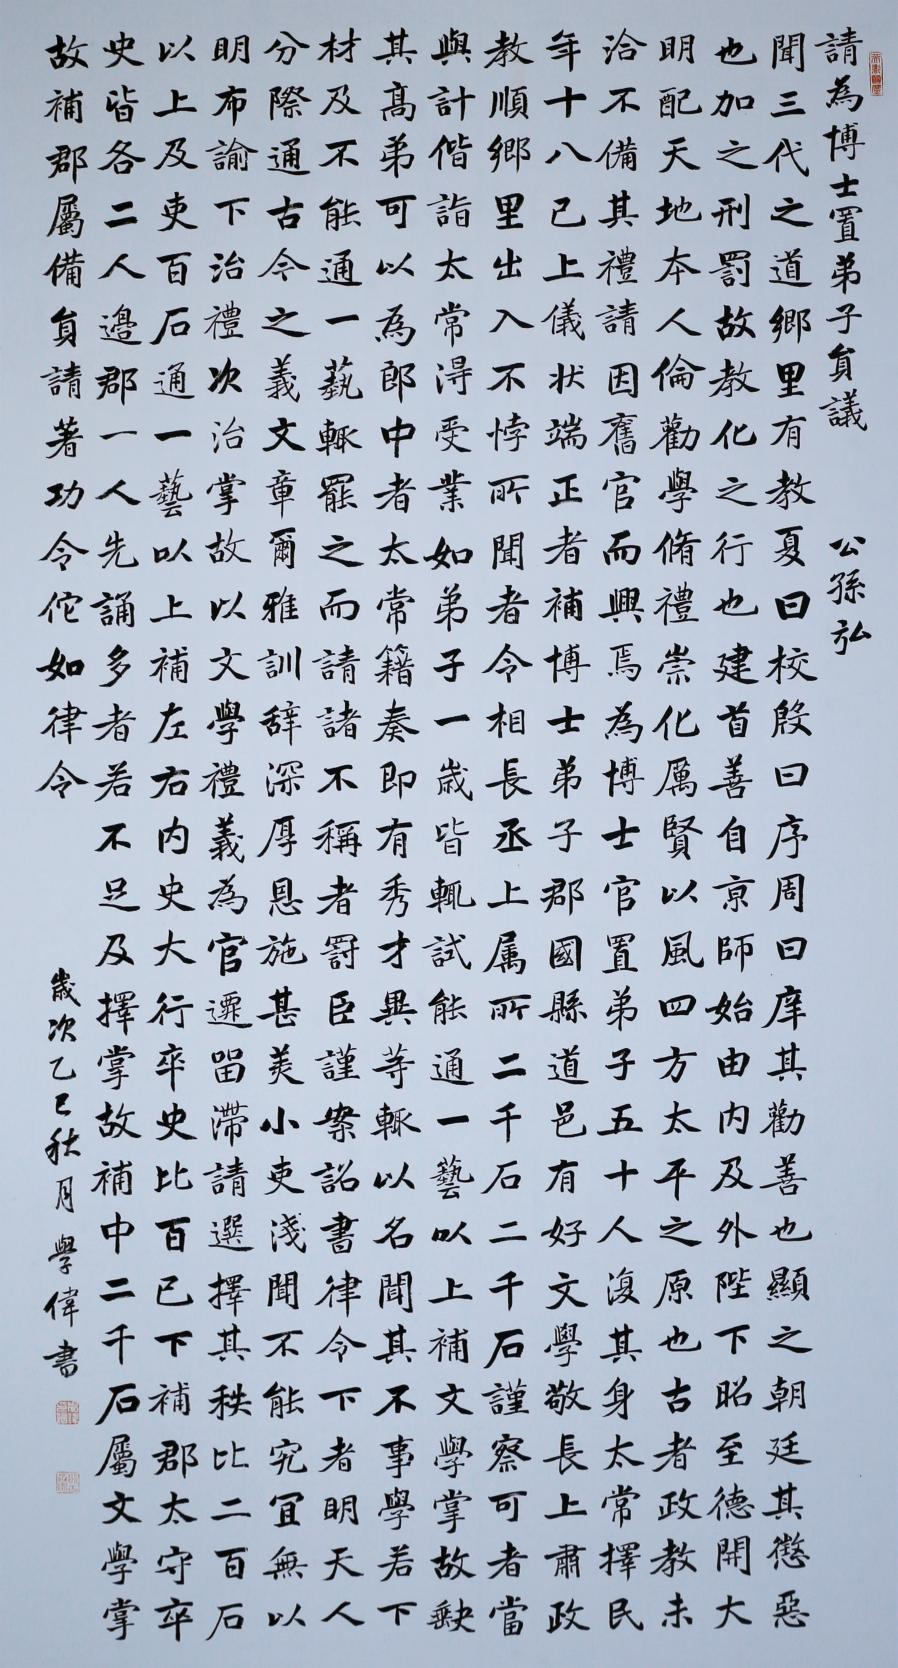 請為博士置弟子員議 公孫弘
聞三代之道鄉里有教夏曰校殷曰序周曰庠其勸善也顯之朝廷其懲惡
也加之刑罰故教化之行也建首善自京師始由内及外陛下昭至德開大
明配天地本人倫勸學脩禮崇化厲賢以風四方太平之原也古者政教未
洽不備其禮請因舊官而興焉為博士官置弟子五十人復其身太常擇民
年十八已上儀状端正者補博士弟子郡國縣道邑有好文學敬長上肅政
教順鄉里出入不悖所聞者令相長丞上属所二千石二千石謹察可者當
與計偕詣太常得受業如弟子一歲皆輒試能通一藝以上補文學掌故缺
其高弟可以為郎中者太常籍奏即有秀才異等輒以名聞其不事學若下
材及不能通一藝輒罷之而請諸不稱者罰臣謹案詔書律令下者明天人
分際通古今之義文章爾雅訓辞深厚恩施甚美小吏淺聞不能究宣無以
明布諭下治禮次治掌故以文學禮義為官遷留滯請選擇其秩比二百石
以上及吏百石通一藝以上補左右内史大行卒史比百已下補郡太守卒
史皆各二人邊郡一人先誦多者若不足及擇掌故補中二千石屬文學掌
故補郡屬備員請著功令佗如律令
歲次乙巳秋月學偉書